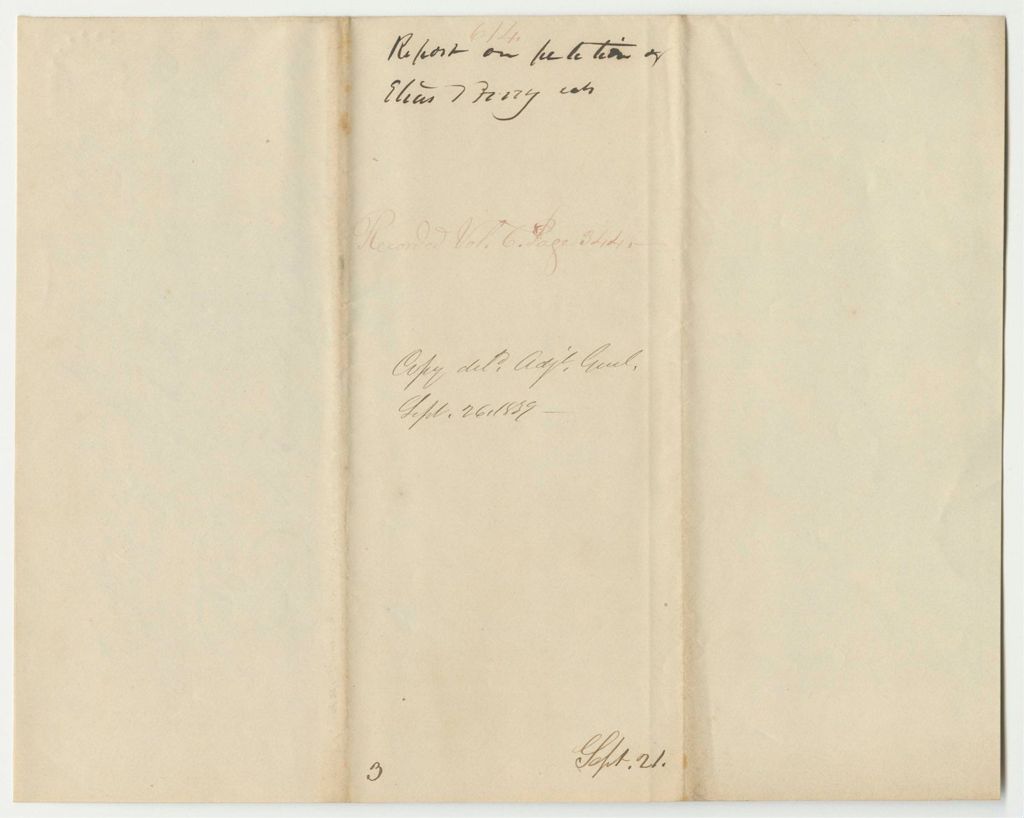 614.
Report on petition of
Elias T Perry
Recorded Vol. 6. Page 344.
Copy del'd. Adj't. Genl.
Sept. 26. 1839 —
3
Sept. 21.